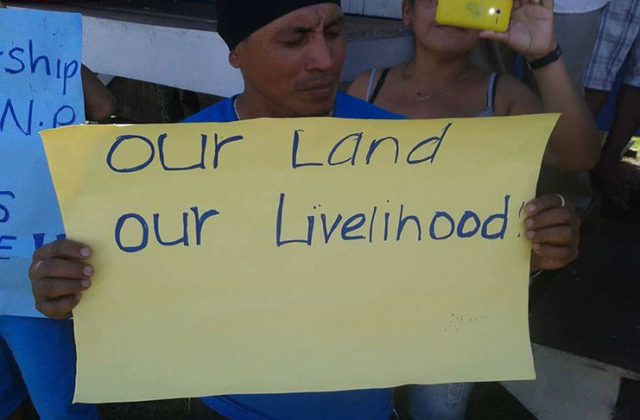 ship
N.P
S
E
OUr Land
our Livelihood!